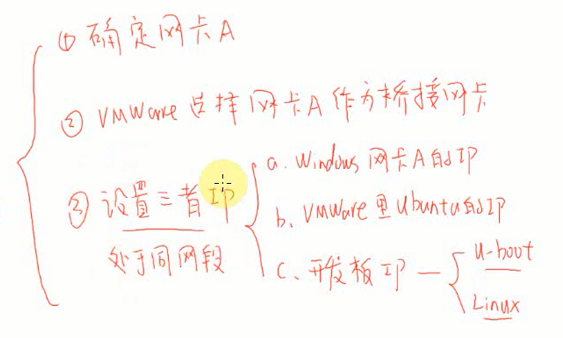 ① 确定网卡A
② VMWare 选择网卡A作为桥接网卡
③ 设置三者IP
处于同网段
a. Windows 网卡A的IP
b. VMWare里Ubuntu的IP
c. 开发板IP —
u-boot
Linux